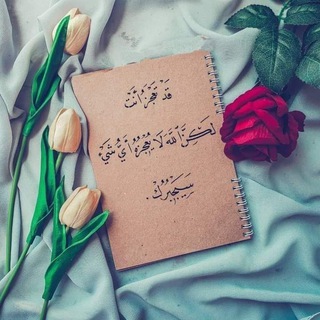 قَدْ تَعْجَزُ أَنْتَ
لَكِنَّ اللهَ لَا يُعْجِزُهُ أَيُّ شَيْءٍ
سَيَجْبُرُكَ.